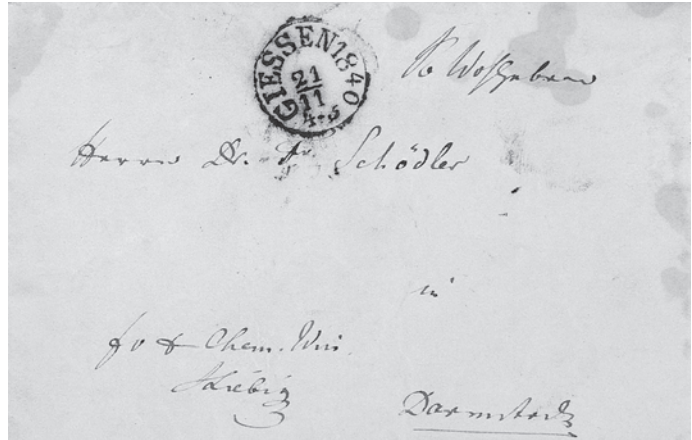 GIESSEN 1840
21
11
4-5
Sr Wohlgeboren
Herrn Dr. Fr. Schödler
in
Chem.
Liebig
Darmstadt